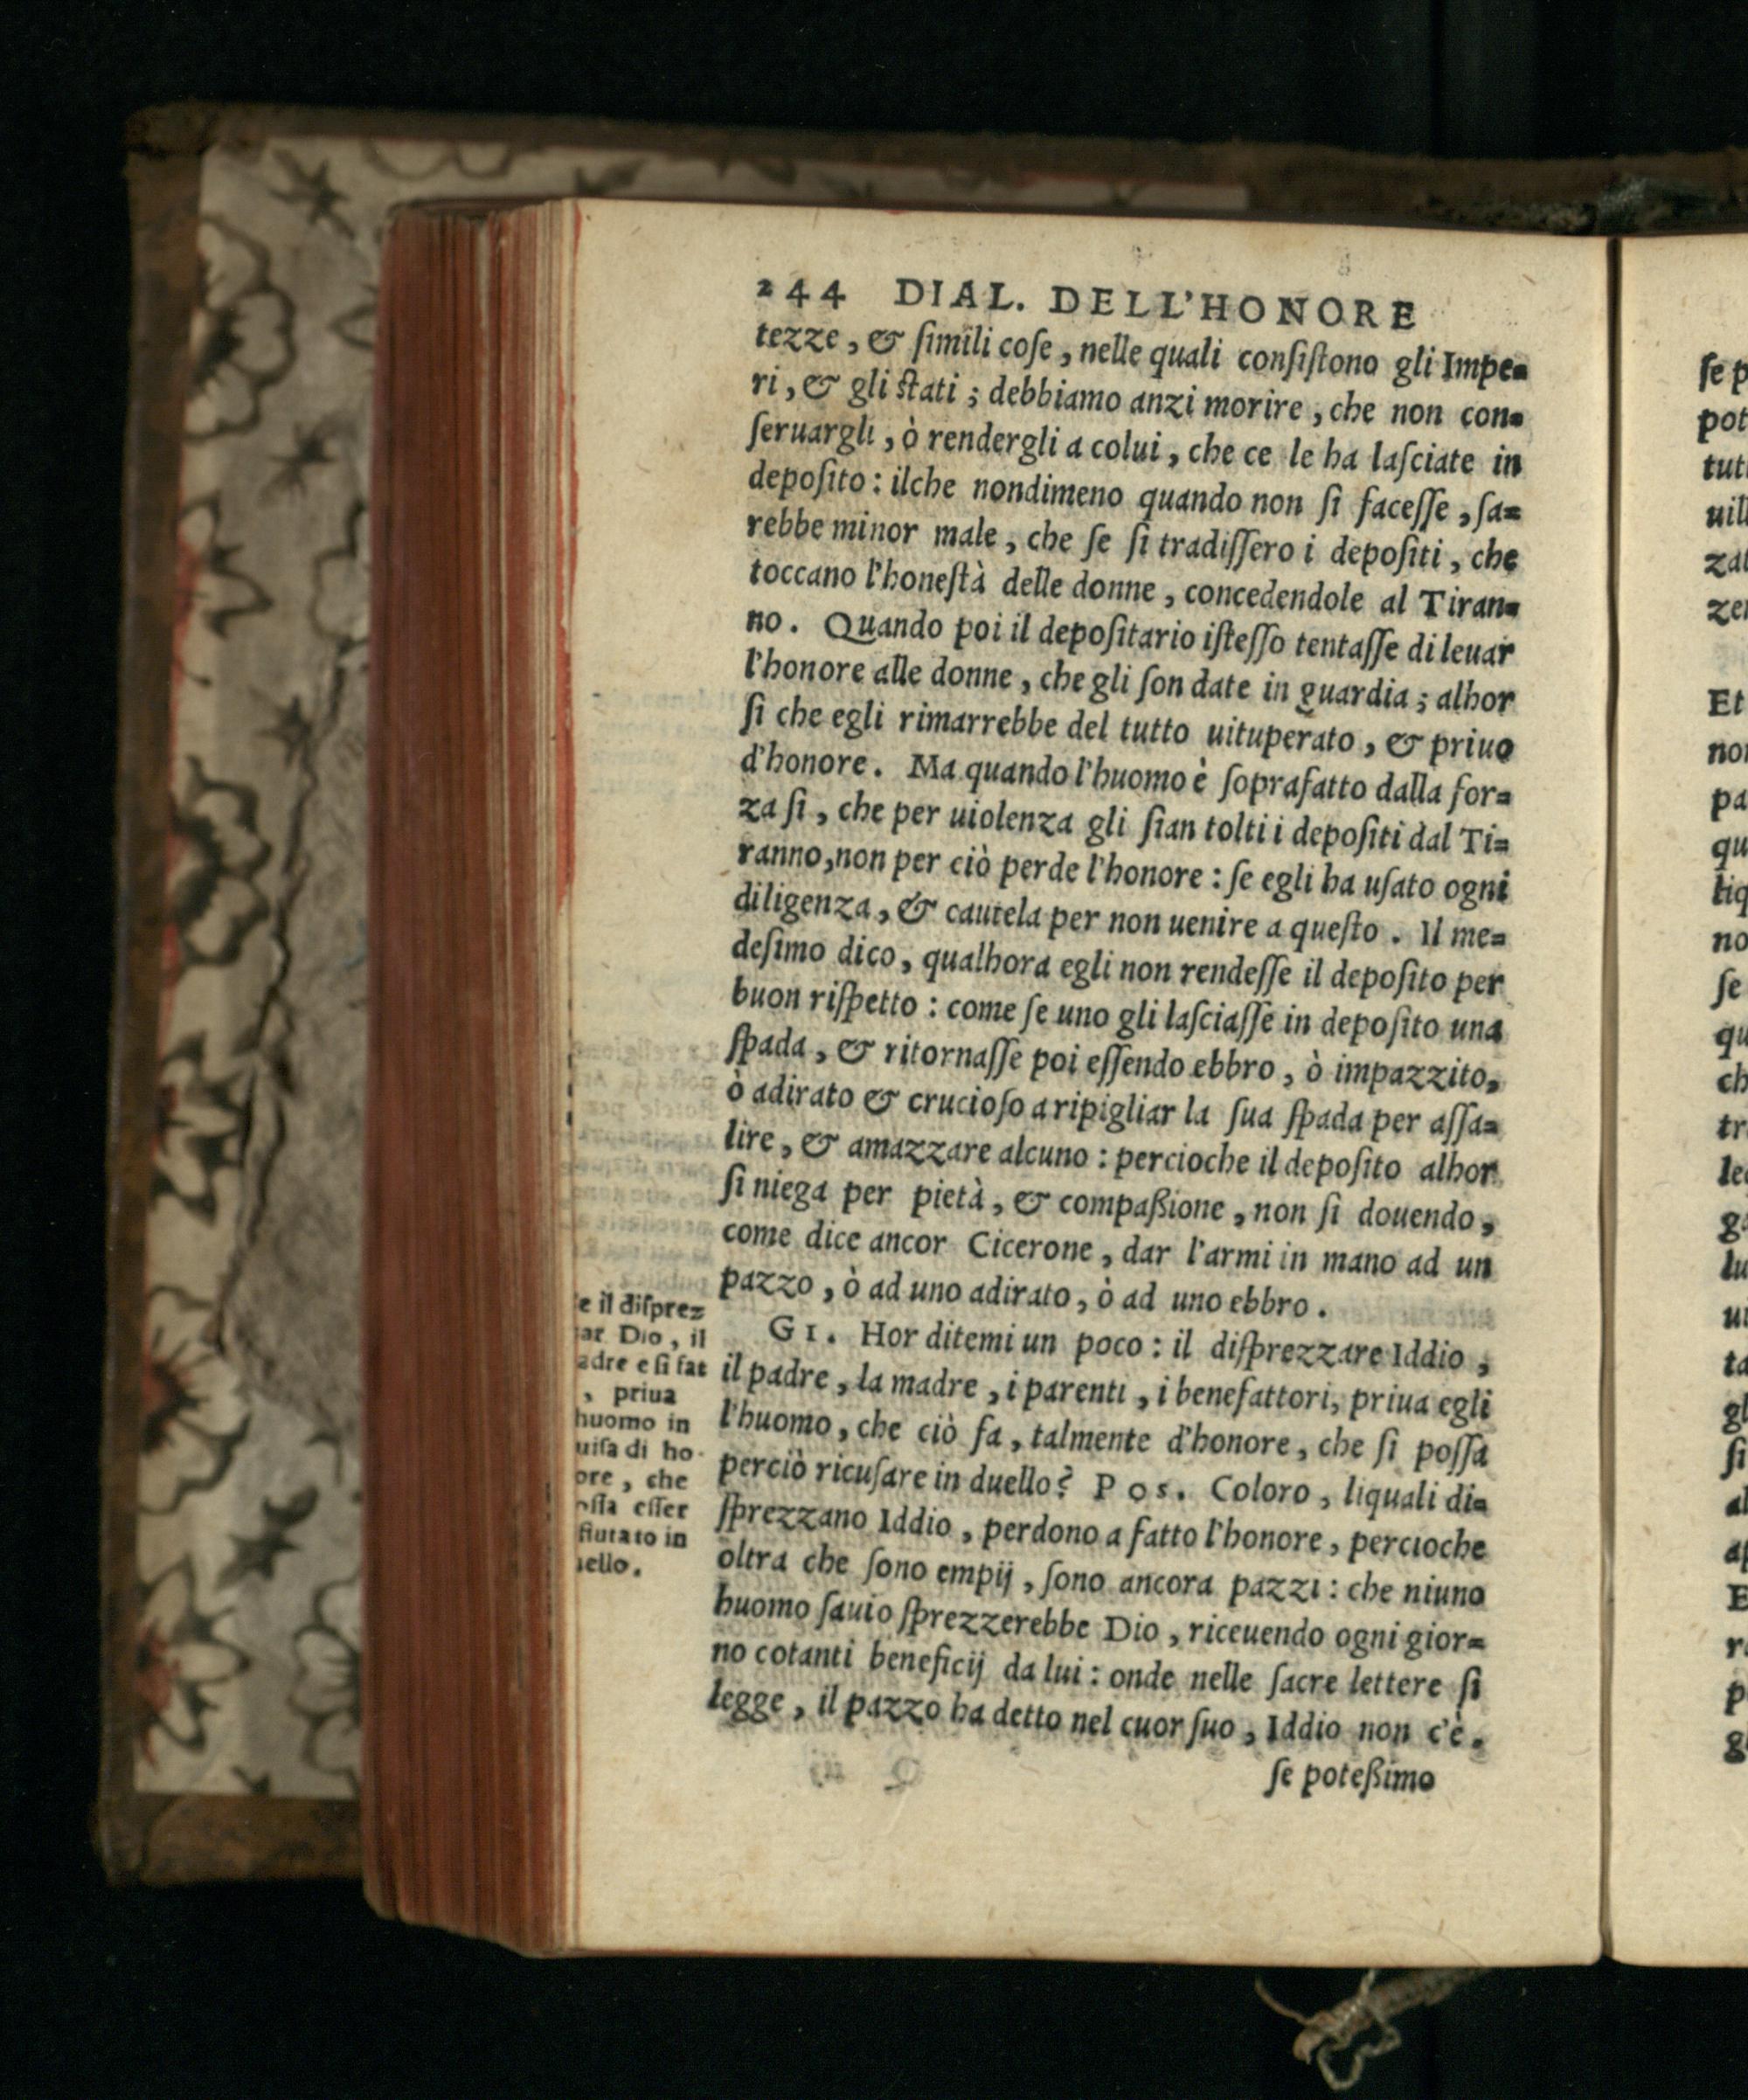 244 DIAL. DELL'HONORE
tezze, & ſimili coſe, nelle quali conſiſtono gli Impe-
ri, & gli ſtati; debbiamo anzi morire, che non con-
ſeruargli, ò rendergli a colui, che ce le ha laſciate in
depoſito: ilche nondimeno quando non ſi faceſſe, ſa-
rebbe minor male, che ſe ſi tradiſſero i depoſiti, che
toccano l'honeſtà delle donne, concedendole al Tiran-
no. Quando poi il depoſitario iſteſſo tentaſſe di leuar
l'honore alle donne, che gli ſon date in guardia; alhor
ſi che egli rimarrebbe del tutto uituperato, & priuo
d'honore. Ma quando l'huomo è ſoprafatto dalla for-
za ſi, che per uiolenza gli ſian tolti i depoſiti dal Ti-
ranno, non per ciò perde l'honore: ſe egli ha uſato ogni
diligenza, & cautela per non uenire a queſto. Il me-
deſimo dico, qualhora egli non rendeſſe il depoſito per
buon riſpetto: come ſe uno gli laſciaſſe in depoſito una
ſpada, & ritornaſſe poi eſſendo ebbro, ò impazzito,
ò adirato & crucioſo a ripigliar la ſua ſpada per aſſa-
lire, & amazzare alcuno: percioche il depoſito alhor
ſi niega per pietà, & compaßione, non ſi douendo,
come dice ancor Cicerone, dar l'armi in mano ad un
pazzo, ò ad uno adirato, ò ad uno ebbro.
GI. Hor ditemi un poco: il diſprezzare Iddio,
il padre, la madre, i parenti, i benefattori, priua egli
l'huomo, che ciò fa, talmente d'honore, che ſi poſſa
perciò ricuſare in duello? POS. Coloro, liquali di-
ſprezzano Iddio, perdono a fatto l'honore, percioche
oltra che ſono empij, ſono ancora pazzi: che niuno
huomo ſauio ſprezzerebbe Dio, riceuendo ogni gior-
no cotanti beneficij da lui: onde nelle ſacre lettere ſi
legge, il pazzo ha detto nel cuor ſuo, Iddio non c'è.
ſe poteßimo
e il diſprez
ar Dio, il
adre e ſi fat
, priua
huomo in
uiſa di ho-
ore, che
oſſa eſſer
fiutato in
uello.
ſe p
pot
tut
uil
zal
zer
Et
non
pa
qu
liq
no
ſe
qu
ch
tr
le
g
lu
ui
ta
gl
ſi
al
ap
E
r
p
g